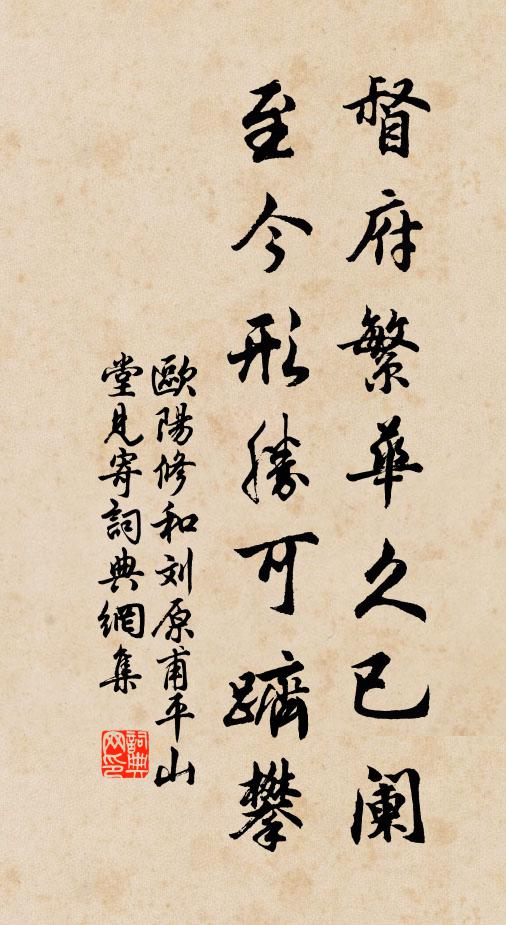 督府繁華久已阑
至今形勝可躋攀
歐陽修和刘原甫平山
堂見寄詞典網集
詞典網印